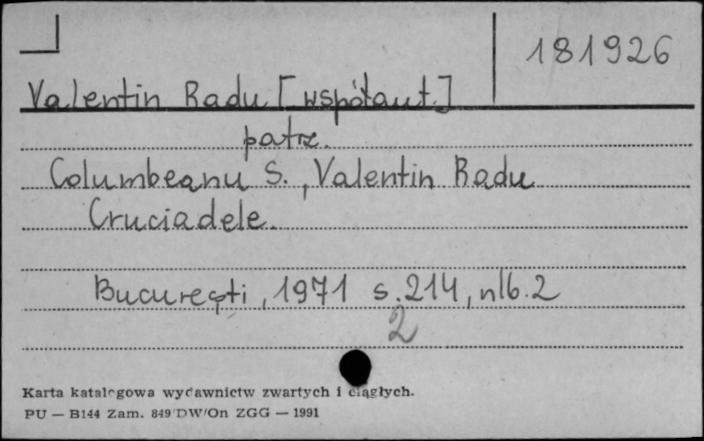 181926
Valentin Radu [współaut.]
patrz.
Columbeanu S., Valentin Radu
Cruciadele.
București, 1971 s. 214, nlb. 2
2
Karta katalogowa wydawnictw zwartych i ciągłych.
PU — B144 Zam. 849/DW/On ZGG — 1991